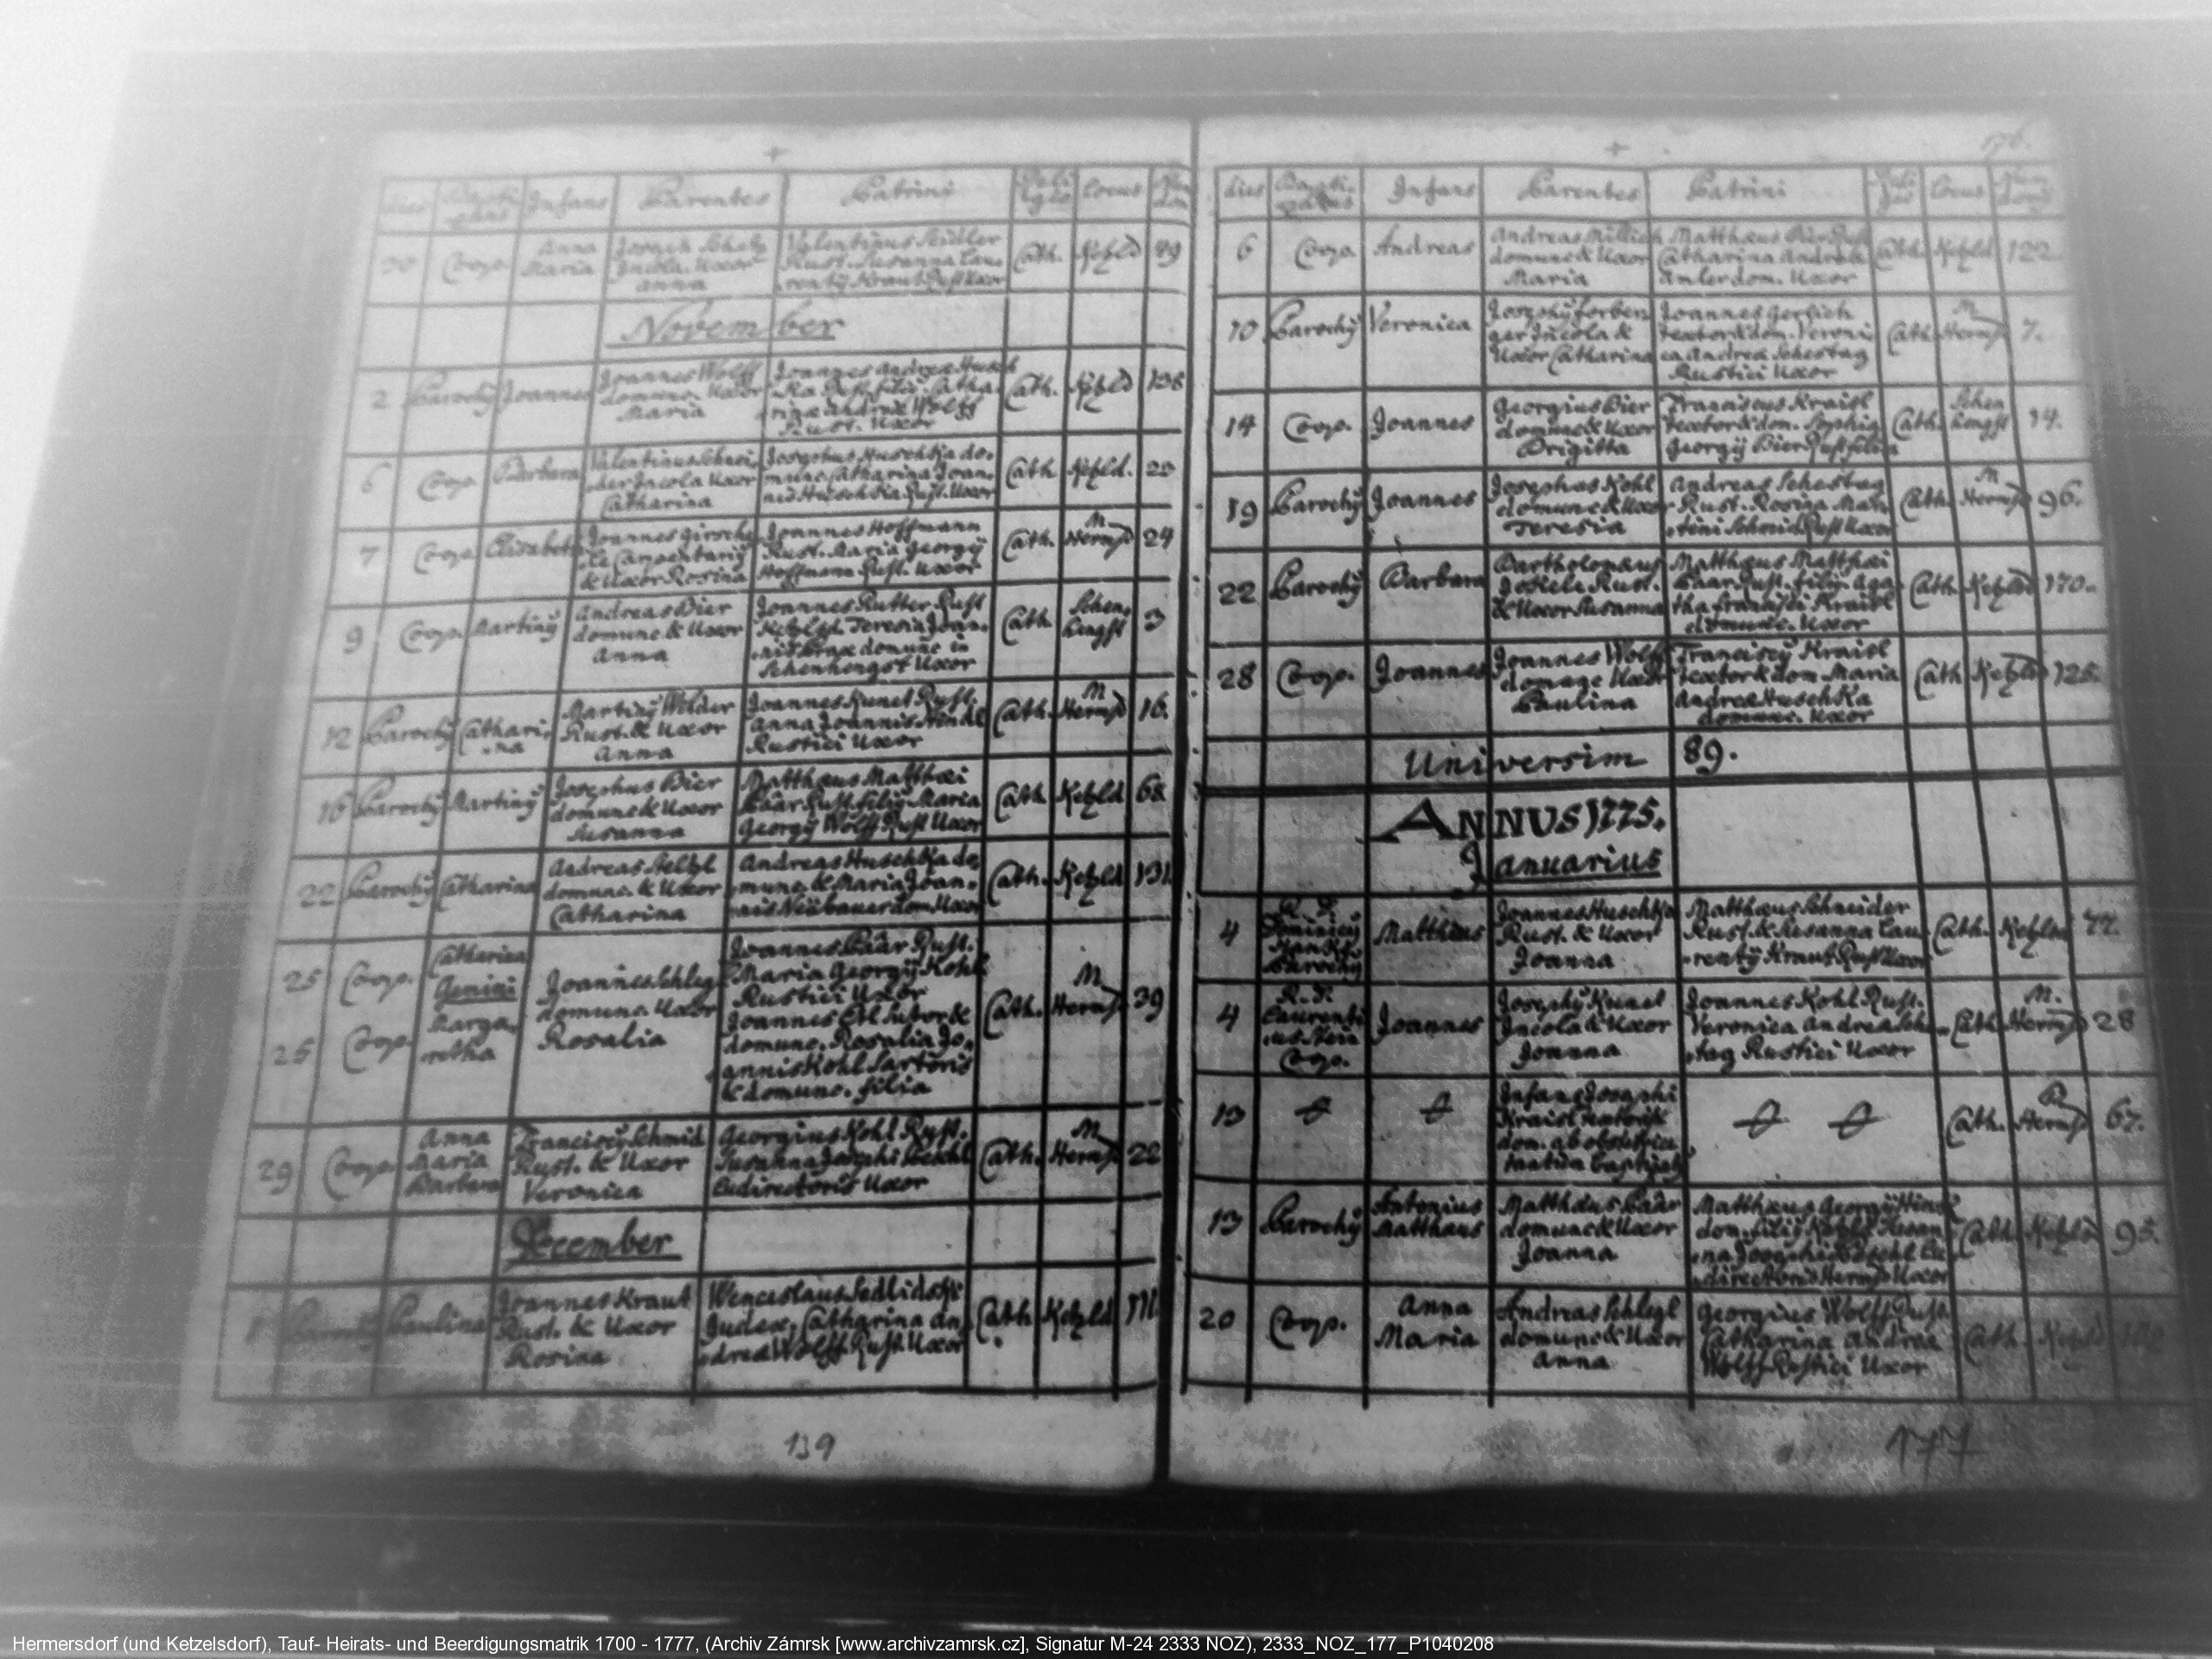 +
dies Bapti- Infans Parentes Patrini Reli- locus Num
zans gio dom
30 Coop. Anna Maria
Incola. Uxor Anna
Valentinus Seidler
Rust. Susanna Lau-
rentÿ Kraut Rust Uxor
Cath. Kezld 89
November
2 Parochÿ Joannes
Joannes Wolff
domunc. Uxor
Maria
Joannes Andreæ Husch
Ka Rust. filiÿ. Catha-
rina Andreæ Wolff
Rust. Uxor
Cath. Kezld 138
6 Coop. Barbara
Valentinus Schnei-
der Incola Uxor
Catharina
Josephus HuschKa do-
munc. Catharina Joan-
nis HuschKa Rust. Uxor
Cath Kezld. 20
7 Coop. Elisabeth
Joannes Girsche
le Carpentariÿ
& Uxor Rosina
Joannes Hoffmann
Rust. Maria Georgÿ
Hoffmann Rust. Uxor
Cath. M Hermsd 24
9 Coop. Martinÿ
Andreas Bier
domunc. & Uxor
Anna
Joannes Rutter Rust
Teresia Joan-
domunc in
Schenhengst Uxor
Cath Schen-
hengst 3
12 Parochÿ Cathari-
na
Martinÿ Wölder
Rust. & Uxor
Anna
Joannes Kunel Rust.
Anna Joannis Hindl
Rustici Uxor
Cath. M Hermsd 16.
16 Parochÿ Martinÿ
Josephus Bier
domunc & Uxor
Susanna
Matthæus Matthæi
Päär Rust. filiÿ. Maria
Georgÿ Wolff Rust Uxor
Cath Kezld 68
22 Parochÿ Catharina
Andreas
domunc. & Uxor
Catharina
Andreas HuschKa do-
munc. & Maria Joan-
nis Neübauer dom. Uxor
Cath. Kezld 131
25 Coop. Catharina
Gemini
25 Coop. Marga-
retha
Joannes Schlegl
domunc. Uxor
Rosalia
Joannes Päär Rust.
Maria Georgÿ Kohl
Rustici Uxor
Joannes Ertl Sutor &
domunc. Rosalia Jo-
annis Kohl Sartoris
& domunc. filia
Cath. M Hermsd 39
29 Coop. Anna
Maria
Barbara
Franciscÿ Schmid
Rust. & Uxor
Veronica
Georgius Kohl Rust.
Susanna Josephi
Ludirectoris Uxor
Cath. M Hermsd 22
December
Parochÿ Paulina
Joannes Kraut
Rust. & Uxor
Rosina
Wenceslaus SedlidsKi
Judex. Catharina An-
dreæ Wolff Rust. Uxor
Cath Kezld 111
139
+
176.
dies Bapti- Infans Parentes Patrini Reli- locus Num
zans gio dom
6 Coop. Andreas
Andreas Millich
domunc & Uxor
Maria
Matthæus Bier Rust
Catharina Andreæ
Amler dom. Uxor
Cath. Kezld 122.
10 Parochÿ Veronica
Josephÿ Forber-
ger Incola &
Uxor Catharina
Joannes Gerlich
textor & dom. Veroni-
ca Andreæ Schestag
Rustici Uxor
Cath. M Hermsd 7.
14 Coop. Joannes
Georgius Bier
domunc & Uxor
Brigitta
Franciscus Kraisl
textor & dom. Sophia
Georgÿ Bier Rust filia
Cath. Schen
hengst 14.
19 Parochÿ Joannes
Josephus Kohl
domunc & Uxor
Teresia
Andreas Schestag
Rust. Rosina Mar-
tini Schmid Rust Uxor
Cath. M Hermsd 96.
22 Parochÿ Barbara
Bartholomæus
Jokele Rust.
& Uxor Susanna
Matthæus Matthæi
Päär Rust. filiÿ. Aga-
tha Francisci Kraisl
domunc. Uxor
Cath Kezld 170.
28 Coop. Joannes
Joannes Wolff
domunc Uxor
Paulina
Franciscÿ Kraisl
textor & dom Maria
Andreæ HuschKa
domunc. Uxor
Cath Kezld 125.
Universim 89.
ANNUS 1775.
Januarius
4 R. P.
Dominicÿ
Parochÿ
Matthæus
Joannes HuschKa
Rust. & Uxor
Joanna
Matthæus Schneider
Rust. & Susanna Lau-
rentÿ Kraut Rust Uxor
Cath. Kezld 77.
4 R. P.
Laurenti-
us
Coop.
Joannes
Josephÿ Kunel
Incola & Uxor
Joanna
Joannes Kohl Rust.
Veronica Andreæ Sche-
stag Rustici Uxor
Cath. M. Hermsd 28
13
Infans Josephi
Kraisl textoris &
dom. ab obstetrice
baptizatÿ
Cath. Hermsd 67.
13 Parochÿ Antonius
Matthæus
Matthæus Päär
domunc & Uxor
Joanna
Matthæus Georgÿ
dom. filiÿ Kezld. Susan-
na Josephi Lu-
directoris Hermsd Uxor
Cath. Kezld 95.
20 Coop. Anna
Maria
Andreas Schlegl
domunc & Uxor
Anna
Georgius Wolff Rust
Catharina Andreæ
Wolff Rustici Uxor
Cath Kezld
177
Hermersdorf (und Ketzelsdorf), Tauf- Heirats- und Beerdigungsmatrik 1700 - 1777, (Archiv Zámrsk [www.archivzamrsk.cz], Signatur M-24 2333 NOZ), 2333_NOZ_177_P1040208